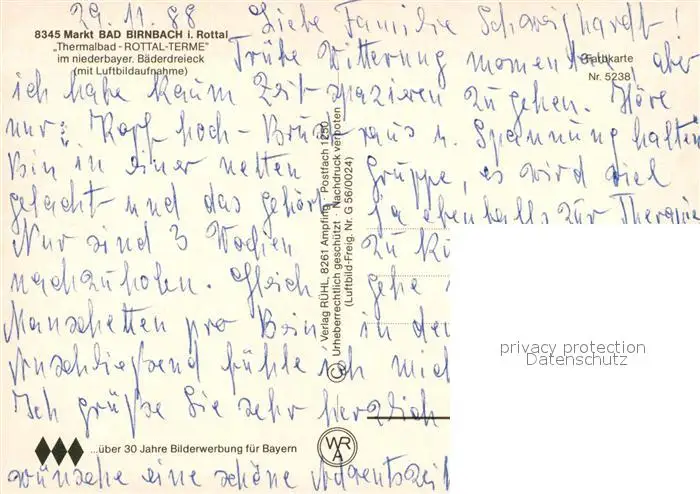 29.11.88
8345 Markt BAD BIRNBACH i. Rottal
„Thermalbad - ROTTAL-TERME"
im niederbayer. Bäderdreieck
(mit Luftbildaufnahme)
Farbkarte
Nr. 5238
Liebe Familie Schweighardt!
Trübe Witterung momentan, aber
ich habe kaum Zeit spazieren zu gehen. Höre
nur: Kopf hoch - Brust raus u. Spannung halten
Bin in einer netten Gruppe, es wird viel
gelacht und das gehört ja ebenfalls zur Therapie
Nur sind 3 Wochen zu ku
nachzuholen. Gleich gehe
Manschetten pro Bein in de
Anschließend fühle ich mic
Ich grüße Sie sehr herzlich
wünsche eine schöne Adventszeit
Verlag RÜHL, 8261 Ampfing · Postfach 1250
© Urheberrechtlich geschützt · Nachdruck verboten
(Luftbild-Freig. Nr. G 56/0024)
...über 30 Jahre Bilderwerbung für Bayern
WRA
privacy protection
Datenschutz